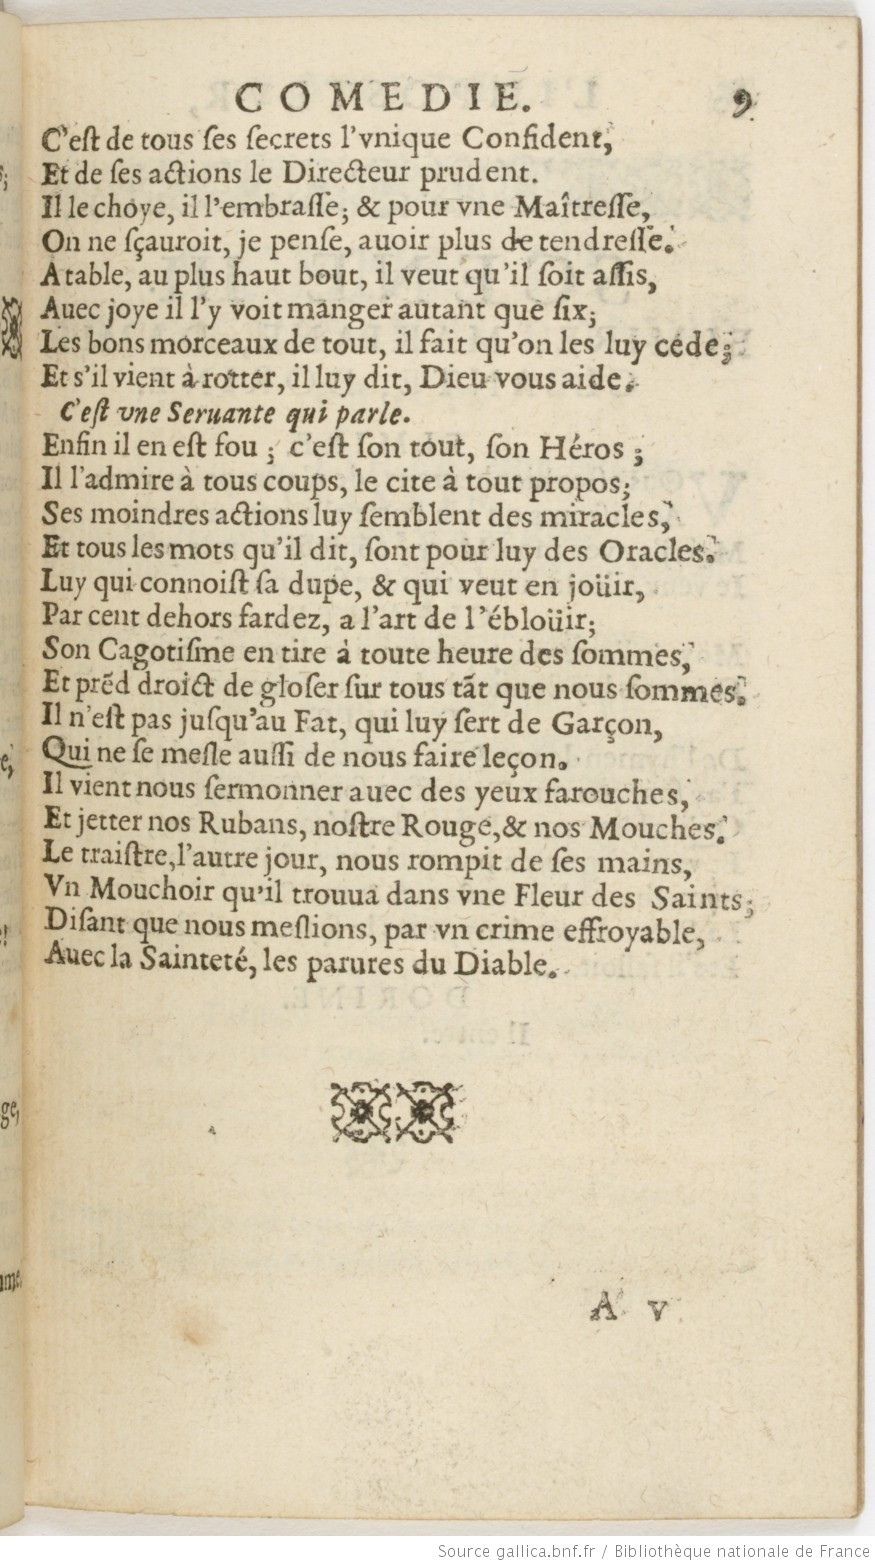 COMEDIE. 9
C'eſt de tous ſes ſecrets l'vnique Confident,
Et de ſes actions le Directeur prudent.
Il le choye, il l'embraſſe; & pour vne Maîtreſſe,
On ne ſçauroit, je penſe, auoir plus de tendreſſe.
A table, au plus haut bout, il veut qu'il ſoit aſſis,
Auec joye il l'y voit manger autant que ſix;
Les bons morceaux de tout, il fait qu'on les luy céde;
Et s'il vient à rotter, il luy dit, Dieu vous aide.
C'eſt vne Seruante qui parle.
Enfin il en eſt fou; c'eſt ſon tout, ſon Héros;
Il l'admire à tous coups, le cite à tout propos;
Ses moindres actions luy ſemblent des miracles,
Et tous les mots qu'il dit, ſont pour luy des Oracles.
Luy qui connoiſt ſa dupe, & qui veut en joüir,
Par cent dehors fardez, a l'art de l'ébloüir;
Son Cagotiſme en tire à toute heure des ſommes,
Et prẽd droict de gloſer ſur tous tãt que nous ſommes.
Il n'eſt pas juſqu'au Fat, qui luy ſert de Garçon,
Qui ne ſe meſle auſſi de nous faire leçon.
Il vient nous ſermonner auec des yeux farouches,
Et jetter nos Rubans, noſtre Rouge, & nos Mouches.
Le traiſtre, l'autre jour, nous rompit de ſes mains,
Vn Mouchoir qu'il trouua dans vne Fleur des Saints;
Diſant que nous meſlions, par vn crime effroyable,
Auec la Sainteté, les parures du Diable.
A v
Source gallica.bnf.fr / Bibliothèque nationale de France